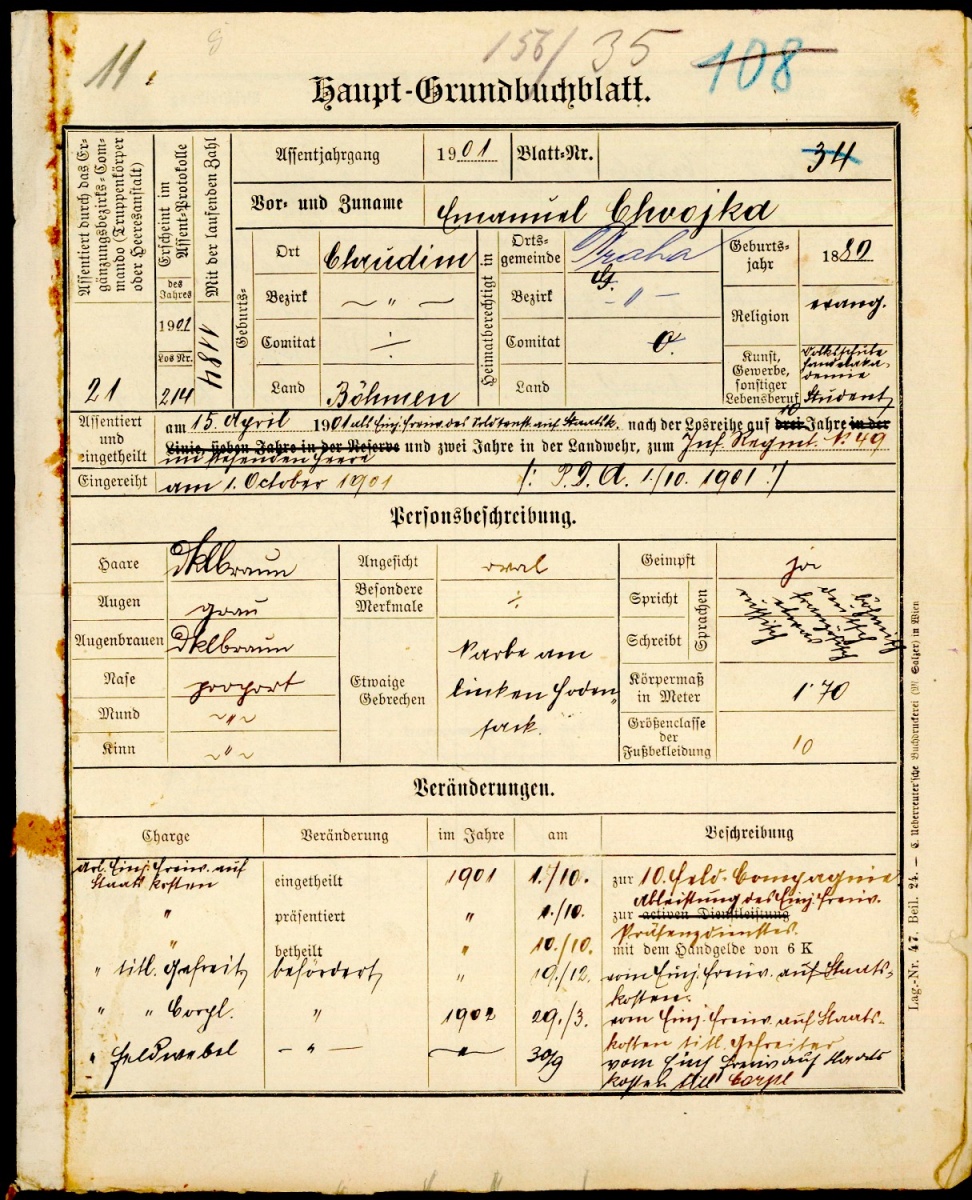 11.
8
156/35
108
Haupt-Grundbuchblatt.
Assentiert durch das Ergänzungsbezirks-Commando (Truppenkörper oder Heeresanstalt)
21
Erscheint im Assent-Protokolle
des Jahres
1901
Los Nr.
214
Mit der laufenden Zahl
1184
Assentjahrgang 1901 Blatt-Nr. 34
Vor- und Zuname Emanuel Chvojka
Geburts-
Ort Chrudim
Bezirk ~ " ~
Comitat ÷
Land Böhmen
Heimatberechtigt in
Ortsgemeinde Praha
Bezirk - " -
Comitat 0.
Land
Geburtsjahr 1880
Religion evang.
Kunst, Gewerbe, sonstiger Lebensberuf
Volksschule
Handelsaka-
demie
Student
Assentiert und eingetheilt
am 15. April 1901 als Einj. Freiw. des Soldatenst. auf Staatsk. nach der Losreihe auf drei 10 Jahre in der
Linie, sieben Jahre in der Reserve und zwei Jahre in der Landwehr, zum Inf. Regmt. № 49
im stehenden Heere
Eingereiht am 1. October 1901 /: P. D. A. 1./10. 1901 :/
Personsbeschreibung.
Haare dklbraun
Augen grau
Augenbrauen dklbraun
Nase proport
Mund ~ " ~
Kinn ~ " ~
Angesicht oval
Besondere Merkmale ÷
Etwaige Gebrechen
Narbe am
linken Hoden"
sack.
Geimpft ja
Spricht
Schreibt
Sprachen
böhmisch
deutsch
französisch
etwas
russisch
Körpermaß in Meter 1·70
Größenclasse der Fußbekleidung 10
Veränderungen.
Charge Veränderung im Jahre am Beschreibung
Einj. Freiw. auf
Staatskosten eingetheilt 1901 1./10. zur 10. Feld-Compagnie
" präsentiert " 1./10. zur activen Dienstleistung
Ableistung des Einj. Freiw.
Präsenzdienstes.
" betheilt " 10./10. mit dem Handgelde von 6 K
" titl. Gefreit befördert " 19./12. vom Einj. Freiw. auf Staats-
kosten.
" " Corpl. " 1902 29./3. vom Einj. Freiw. auf Staats-
kosten titl. Gefreiter
" Feldwebel - " - " 30/9 vom Einj Freiw auf Staats
kosten titl Corpl
Lag.-Nr. 47. Beil. 24. — C. Ueberreuter'sche Buchdruckerei (M. Salzer) in Wien